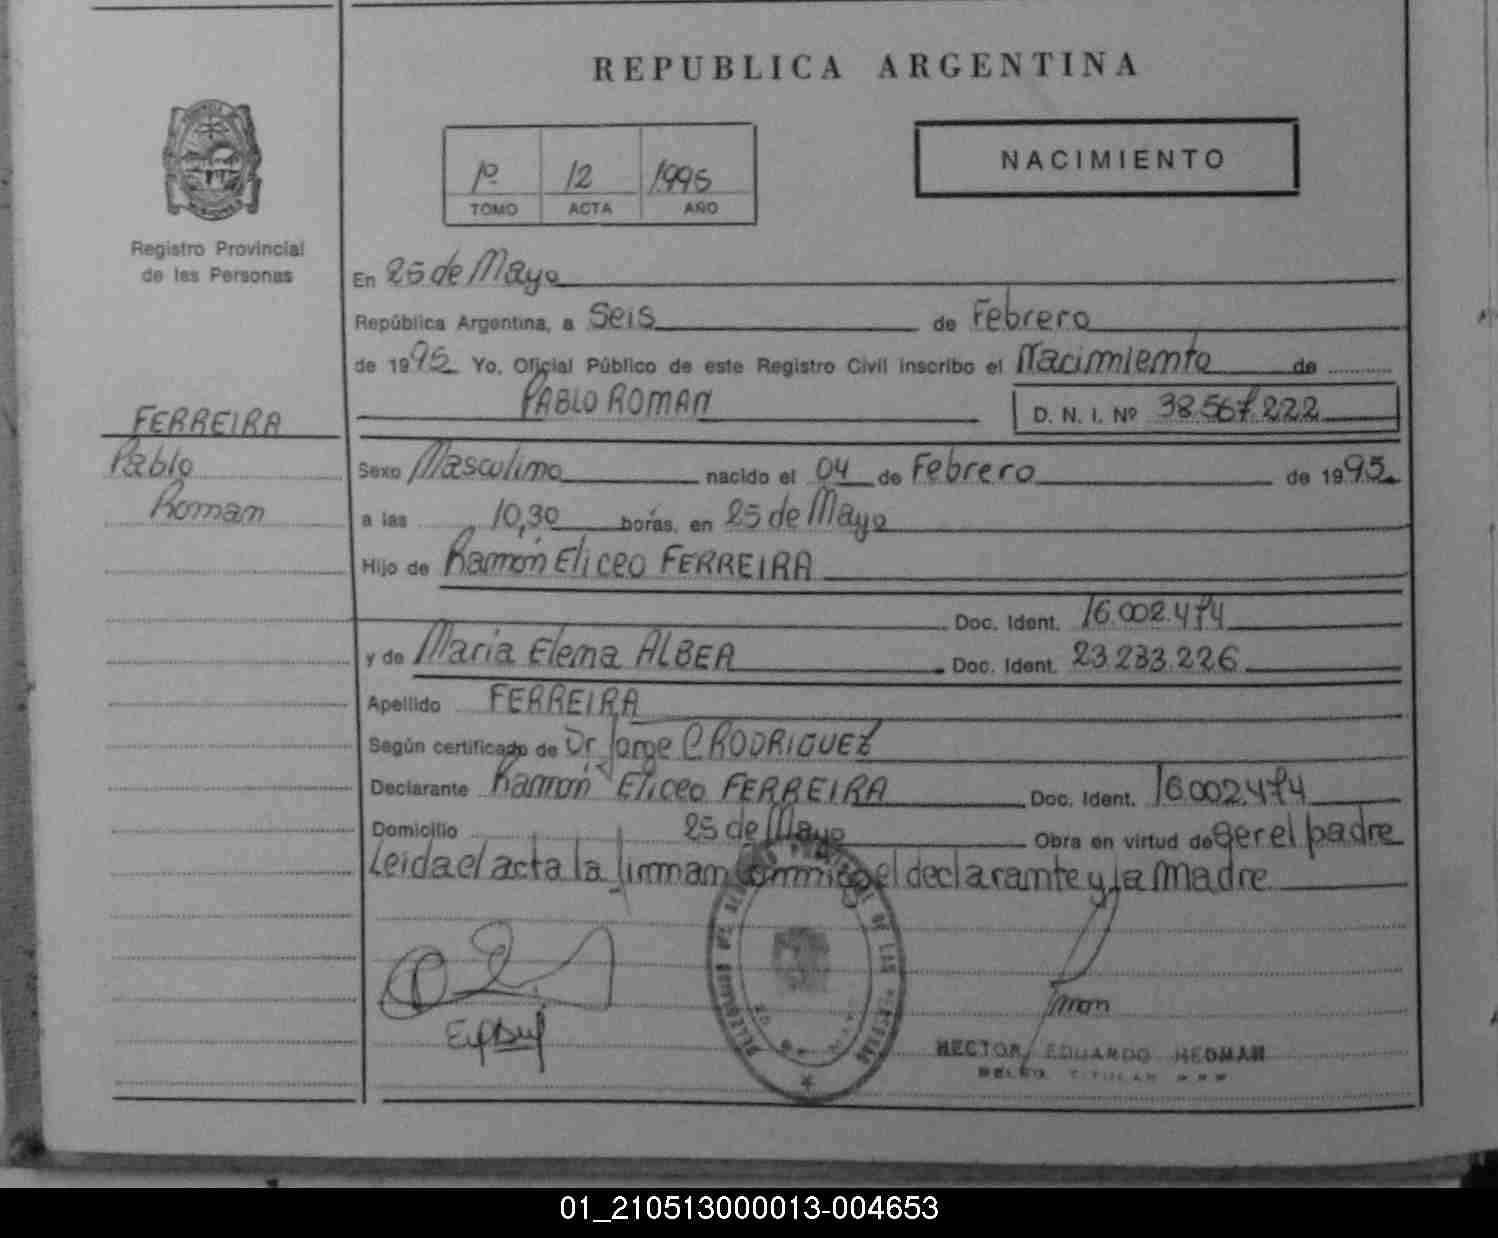 REPUBLICA ARGENTINA
1º 12 1995
TOMO ACTA AÑO
NACIMIENTO
Registro Provincial
de las Personas
En 25 de Mayo
República Argentina, a Seis de Febrero
de 1995 Yo, Oficial Público de este Registro Civil inscribo el Nacimiento de
PABLO ROMAN D. N. I. Nº 38.567.222
FERREIRA
Pablo
Roman
Sexo Masculino nacido el 04 de Febrero de 1995
a las 10,30 horas, en 25 de Mayo
Hijo de Ramón Eliceo FERREIRA
Doc. Ident. 16.002.474
y de Maria Elena ALBEA Doc. Ident. 23.233.226
Apellido FERREIRA
Según certificado de Dr Jorge C RODRIGUEZ
Declarante Ramón Eliceo FERREIRA Doc. Ident. 16.002.474
Domicilio 25 de Mayo Obra en virtud de ser el padre
Leida el acta la firman conmigo el declarante y la madre
HECTOR EDUARDO HEDMAN
01_210513000013-004653